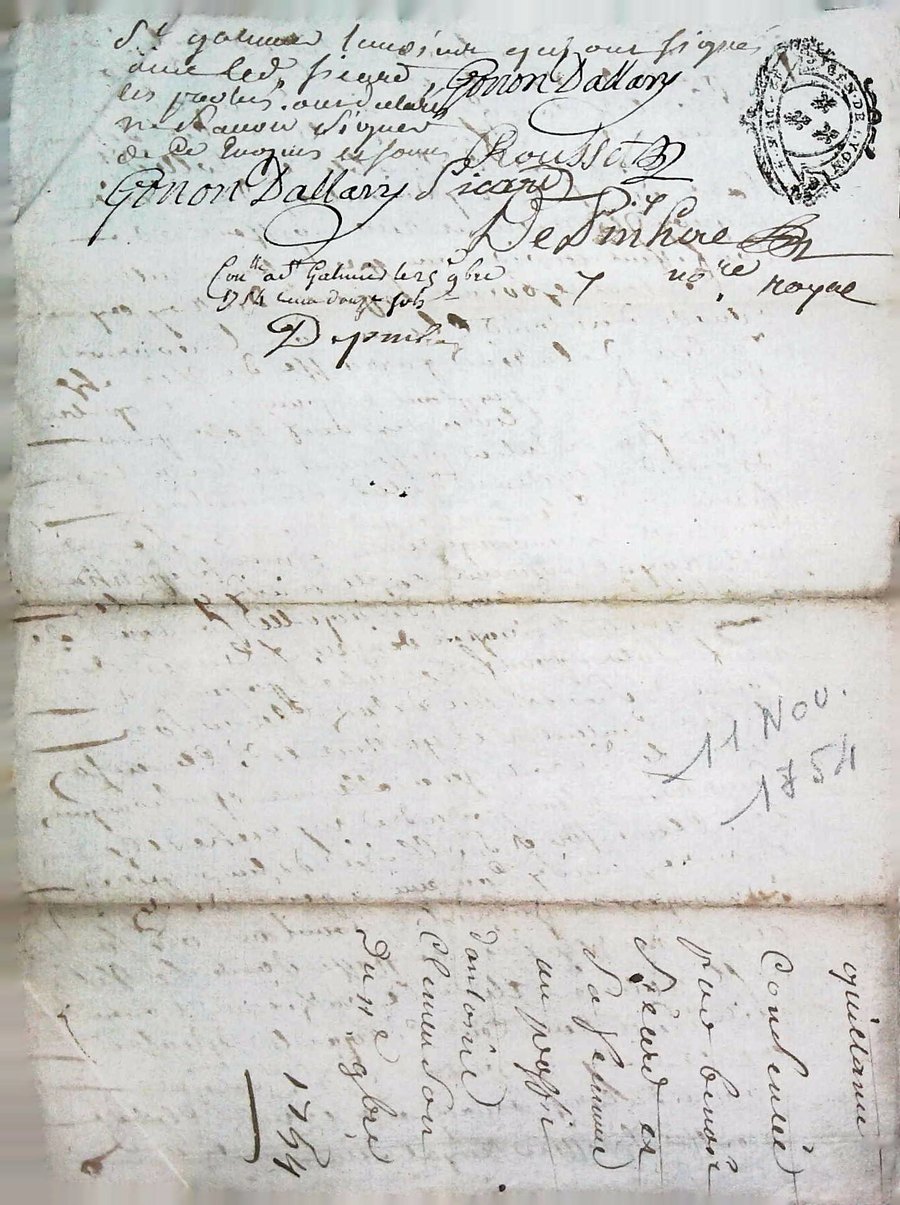 St galmier qui ont signé
avec led. sicard
les parties ont déclaré
ne savoir signer
de ce enquis
Gonon Dallary
Rousset
Gonon Dallary Sicard
DePinhac
nore royal
Conlle a St Galmier le 25 9bre
1754 Reçu douze sols
11 Nov.
1754
quictance
Consentie
par benoit
Sicard et
sa femme
au proffit
dantoine
Clemenson
Du 11e 9bre
1754